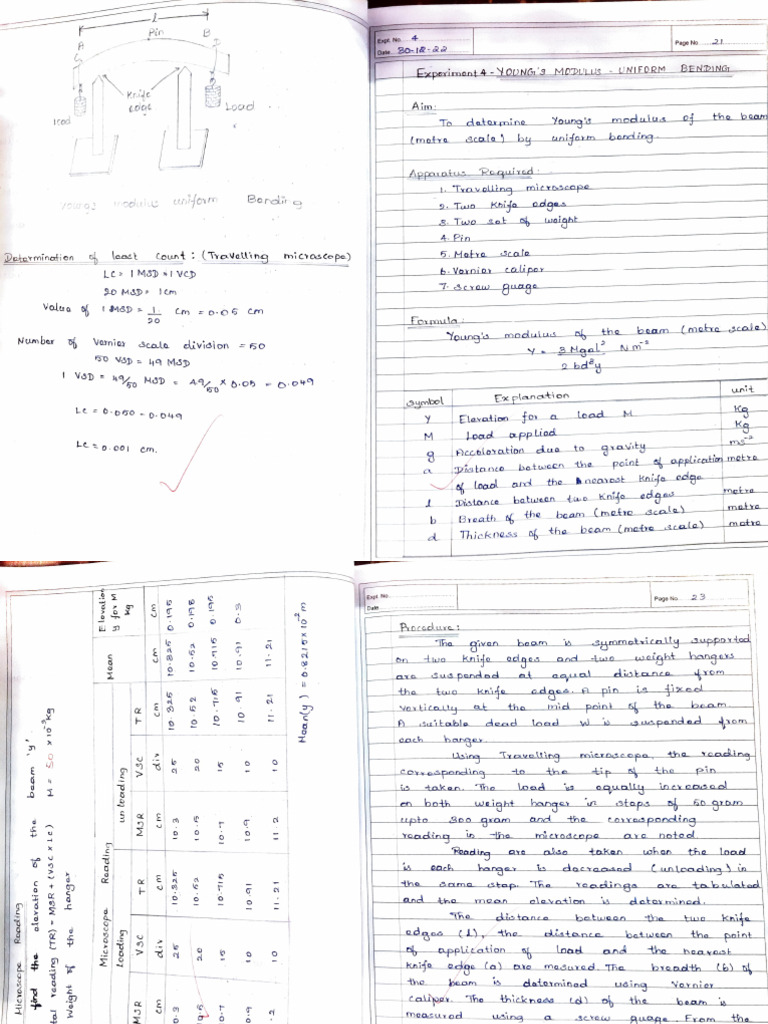 l
Pin
A
B
C
D
Knife
Edge
load
Load
Youngs modulus uniform Bending
Determination of least count : (Travelling microscope)
LC = 1 MSD = 1 VCD
20 MSD = 1cm
Value of 1 MSD = 1/20 cm = 0.05 cm
Number of Vernier scale division = 50
50 VSD = 49 MSD
1 VSD = 49/50 MSD = 49/50 × 0.05 = 0.049
LC = 0.050 - 0.049
LC = 0.001 cm.
Expt. No. 4
Date 30-12-22
Page No. 21
Experiment 4 - YOUNG'S MODULUS - UNIFORM BENDING
Aim:
To determine Young's modulus of the beam
(metre scale) by uniform bending.
Apparatus Required:
1. Travelling microscope
2. Two Knife edges
3. Two set of weight
4. Pin
5. Metre scale
6. Vernier caliper
7. Screw guage
Formula:
Young's modulus of the beam (metre scale)
Y = 3Mgal² / 2bd³y Nm⁻²
symbol Explanation unit
Y Elevation for a load M Kg
M Load applied Kg
g Acceleration due to gravity ms⁻²
a Distance between the point of application metre
of load and the nearest Knife edge
l Distance between two Knife edges metre
b Breath of the beam (metre scale) metre
d Thickness of the beam (metre scale) metre
Microscope Reading
find the elevation of the beam 'y'.
tal reading (TR) = MSR + (VSC x LC) M = 50 x 10⁻³ kg
Weight of the hanger
Microscope Reading Mean Elevation
Y for M
kg
Loading unloading
MSR VSC TR MSR VSC TR
cm div cm cm div cm cm cm
0.3 25 10.325 10.3 25 10.325 10.325 0.195
20 10.52 10.5 20 10.52 10.52 0.198
0.7 15 10.715 10.7 15 10.715 10.715 0.195
0.9 10 10.91 10.9 10 10.91 10.91 0.3
.2 10 11.21 11.2 10 11.21 11.21
Mean(y) = 0.8215 x 10⁻² m
Expt. No.
Date
Page No. 23
Procedure:
The given beam is symmetrically supported
on two knife edges and two weight hangers
are suspended at equal distance from
the two knife edges. A pin is fixed
vertically at the mid point of the beam.
A suitable dead load W is suspended from
each hanger.
Using Travelling microscope, the reading
corresponding to the tip of the pin
is taken. The load is equally increased
on both weight hanger in steps of 50 gram
upto 300 gram and the corresponding
reading in the microscope are noted.
Reading are also taken when the load
is each hanger is decreased (unloading) in
the same step. The readings are tabulated
and the mean elevation is determined.
The distance between the two knife
edges (l), the distance between the point
of application of load and the nearest
knife edge (a) are mesured. The breadth (b) of
the beam is determined using vernier
caliper. The thickness (d) of the beam is
measured using a screw guage. From the